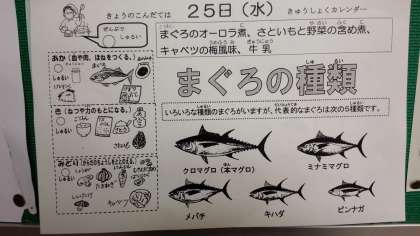 きょうのこんだては
25日(水)
きゅうしょくカレンダー
ぜんぶで
しゅるい
まぐろのオーロラ煮、さといもと野菜の含め煮、
キャベツの梅風味、牛乳
まぐろの種類
いろいろな種類のまぐろがいますが、代表的なまぐろは次の5種類です。
クロマグロ(本マグロ)
ミナミマグロ
メバチ
キハダ
ビンナガ
あか(血や肉、ほねをつくる。)
しゅるい
まぐろ
き(ねつや力のもとになる。)
しゅるい
ごはん
さといも
みどり
しゅるい
しょうが
たまねぎ
しいたけ
キャベツ